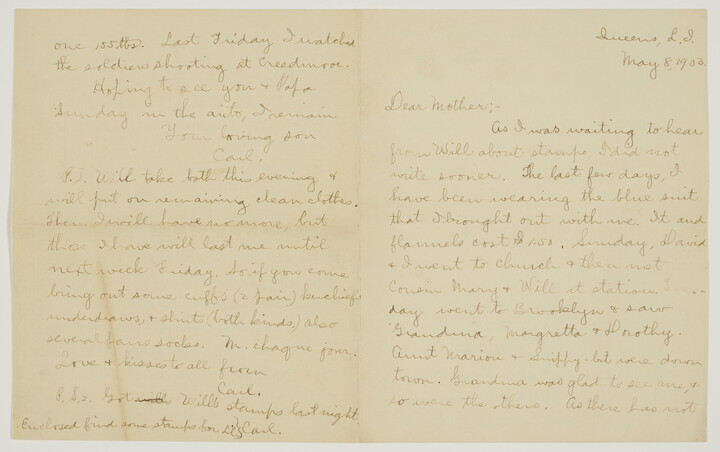 Queens, L.I.
May 8, 1903.
Dear Mother;-
As I was waiting to hear
from Will about stamps, I did not
write sooner. The last few days, I
have been wearing the blue suit
that I brought out with me. It and
flannels cost $1.50. Sunday, David
& I went to church & then met
Cousin Mary & Will at station.
day went to Brooklyn & saw
Grandma, Margretta & Dorothy.
Aunt Marion & Snippy-bit were down
town. Grandma was glad to see me, &
so were the others. As there has not
one 155 lbs. Last Friday I watched
the soldiers shooting at Creedmoor.
Hoping to see you & Papa
Sunday in the auto, I remain
Your loving son
Carl.
P.S. Will take bath this evening &
will put on remaining clean clothes.
Then I will have no more, but
those I have will last me until
next week Friday. So if you come
bring out some cuffs (2 pair) kerchiefs
underdraws, & shirt (both kinds,) also
several pairs socks. M. chaque jour.
Love & kisses to all from
Carl.
P.S.2. Got Will's stamps last night.
Enclosed find some stamps for Carl.